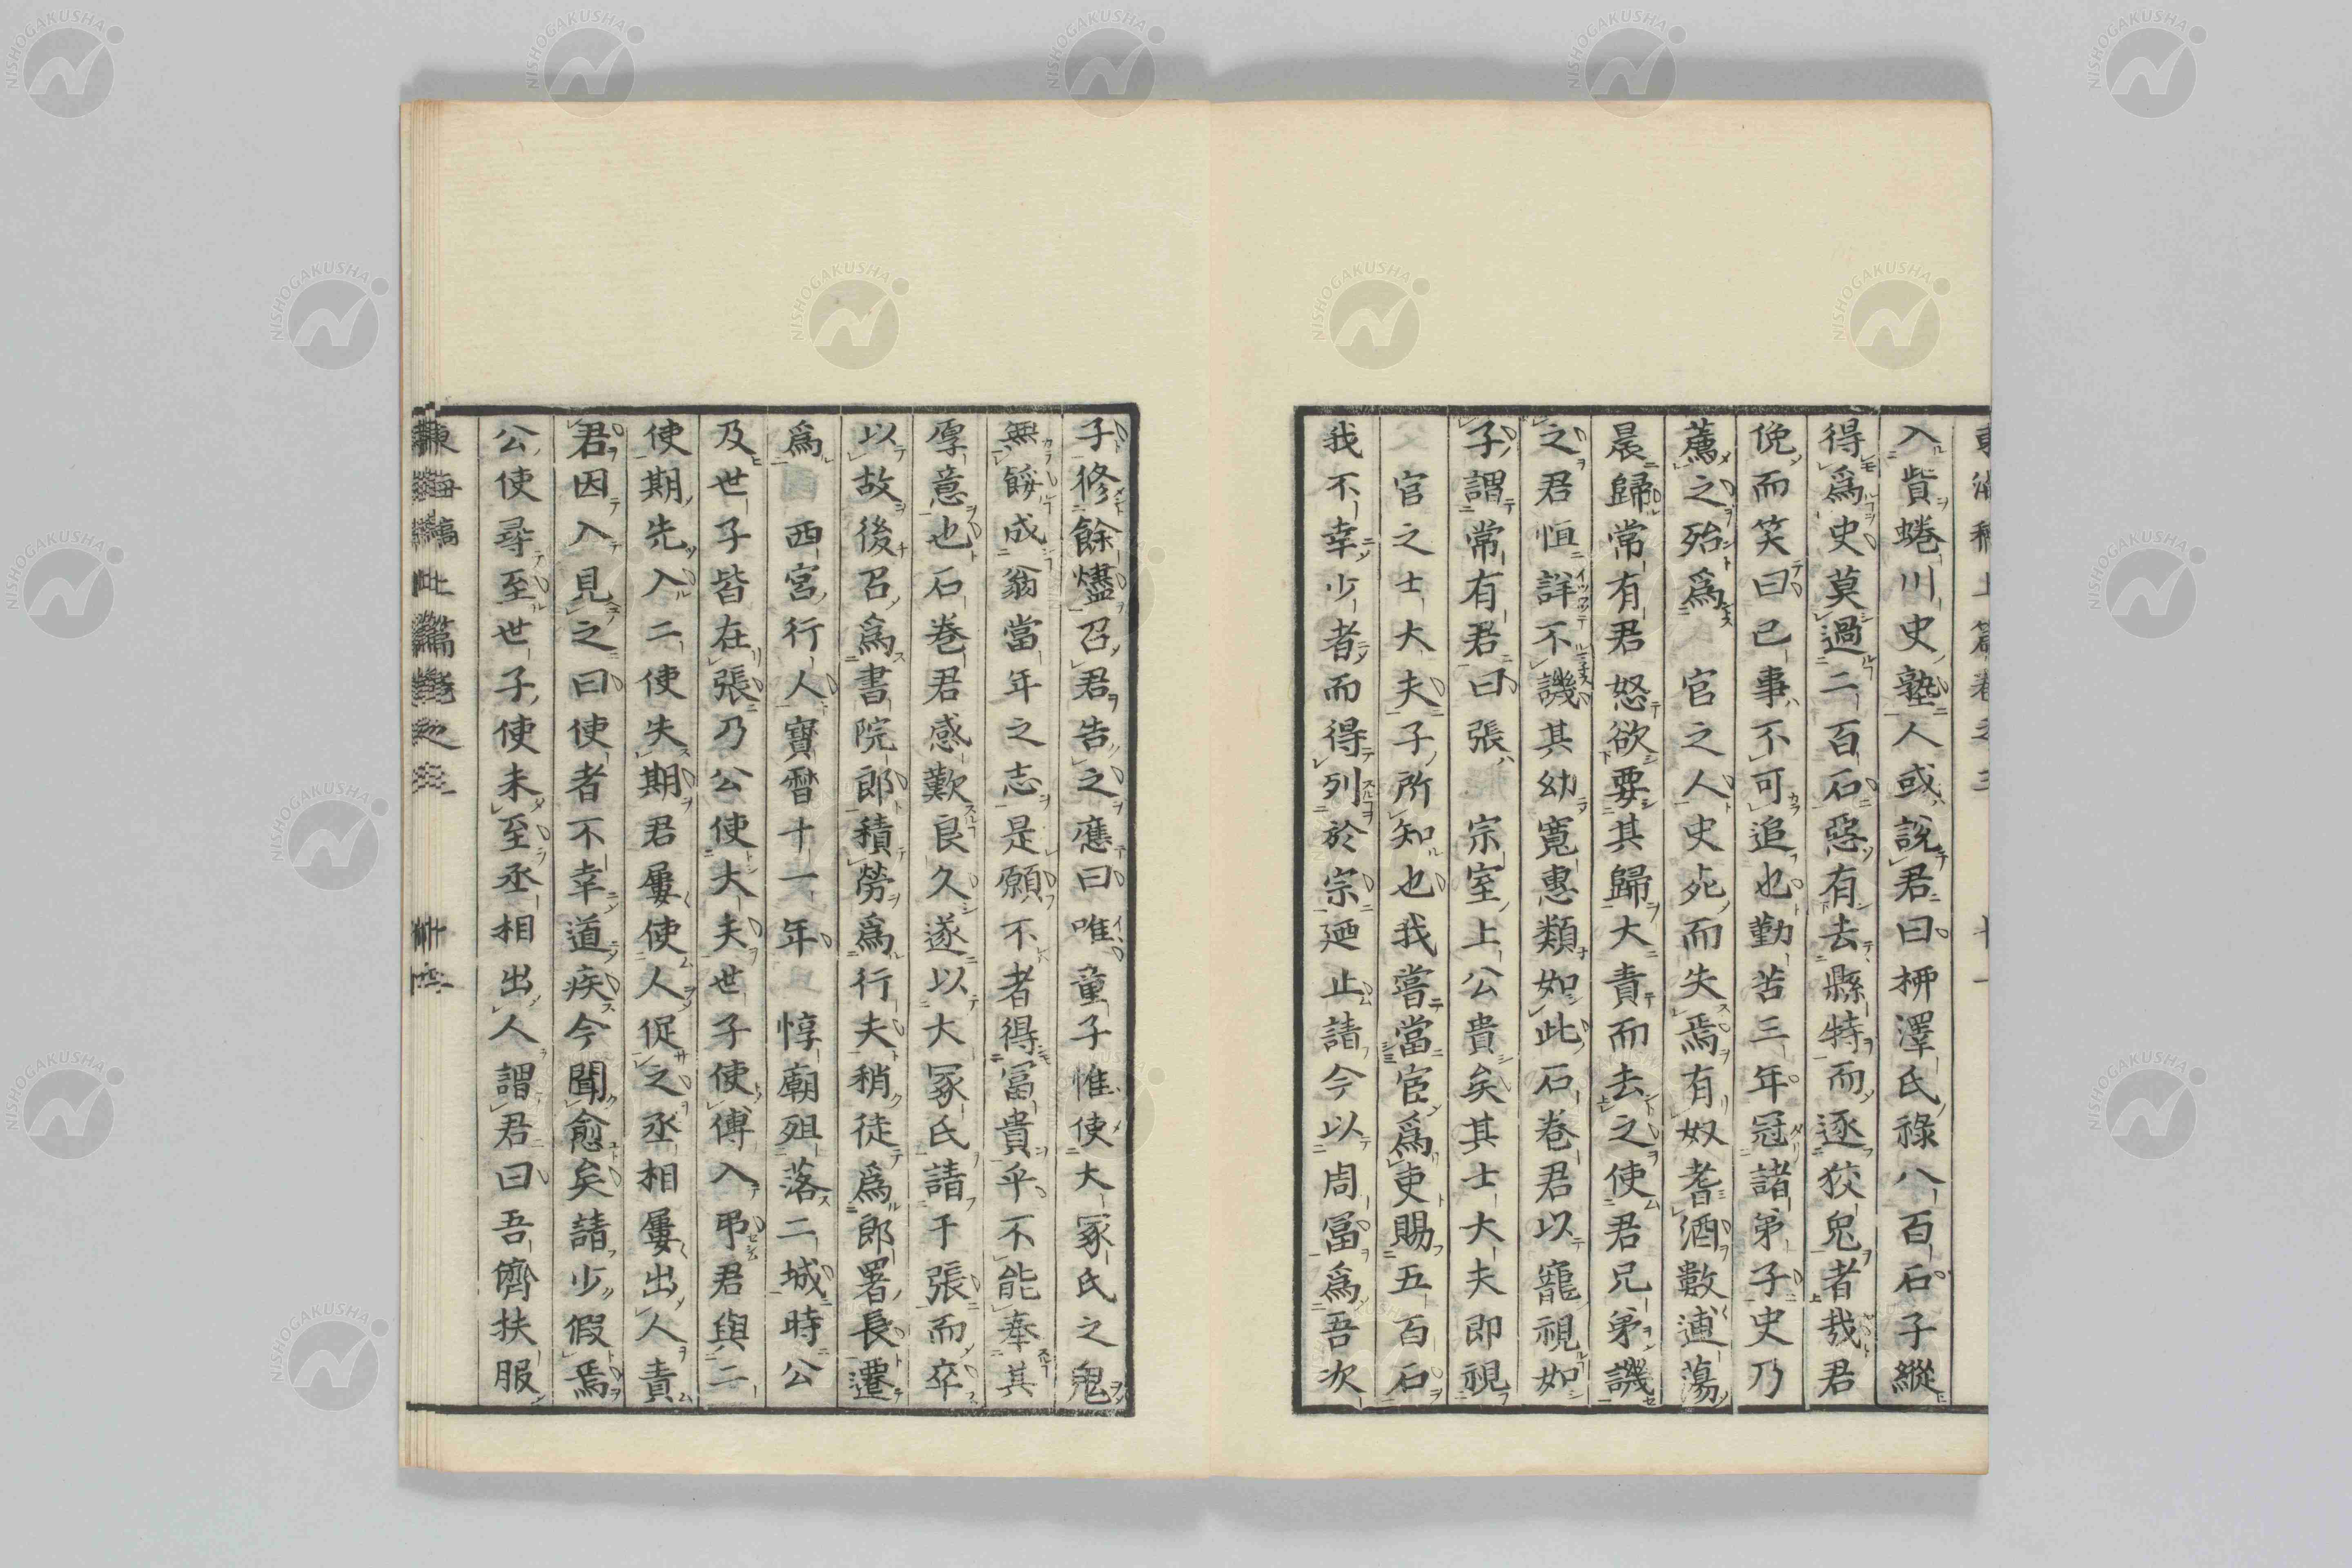 入貲蜷川史塾人或說君曰柳澤氏祿八百石子縱
得爲史莫過二百石惡有去縣特而逐狡兔者哉君
俛而笑曰已事不可追也勤苦三年冠諸弟子史乃
薦之殆爲 官之人史死而失焉有奴耆酒數逋蕩
晨歸常有君怒欲要其歸大責而去之使君兄弟譏
之君恒詳不譏其幼寬惠類如此石卷君以寵視如
子謂常有君曰張 宗室上公貴矣其士大夫即視
官之士大夫子所知也我嘗當宦爲吏賜五百石
我不幸少者而得列於宗廼止請今以周冨爲吾次
子修餘燼召君告之應曰唯童子惟使大冢氏之鬼
無餒成翁當年之志是願不者得冨貴乎不能奉其
厚意也石卷君感歎良久遂以大冢氏請于張而卒
以故後召爲書院郎積勞爲行夫稍徒爲郎署長遷
爲 西宮行人寶曆十一年 惇廟殂落二城時公
及世子皆在張乃公使大夫世子使傅入弔君與二
使期先入二使失期君屢使人促之丞相屢出人責
君因入見之曰使者不幸道疾今聞愈矣請少假焉
公使尋至世子使未至丞相出人謂君曰吾儕扶服